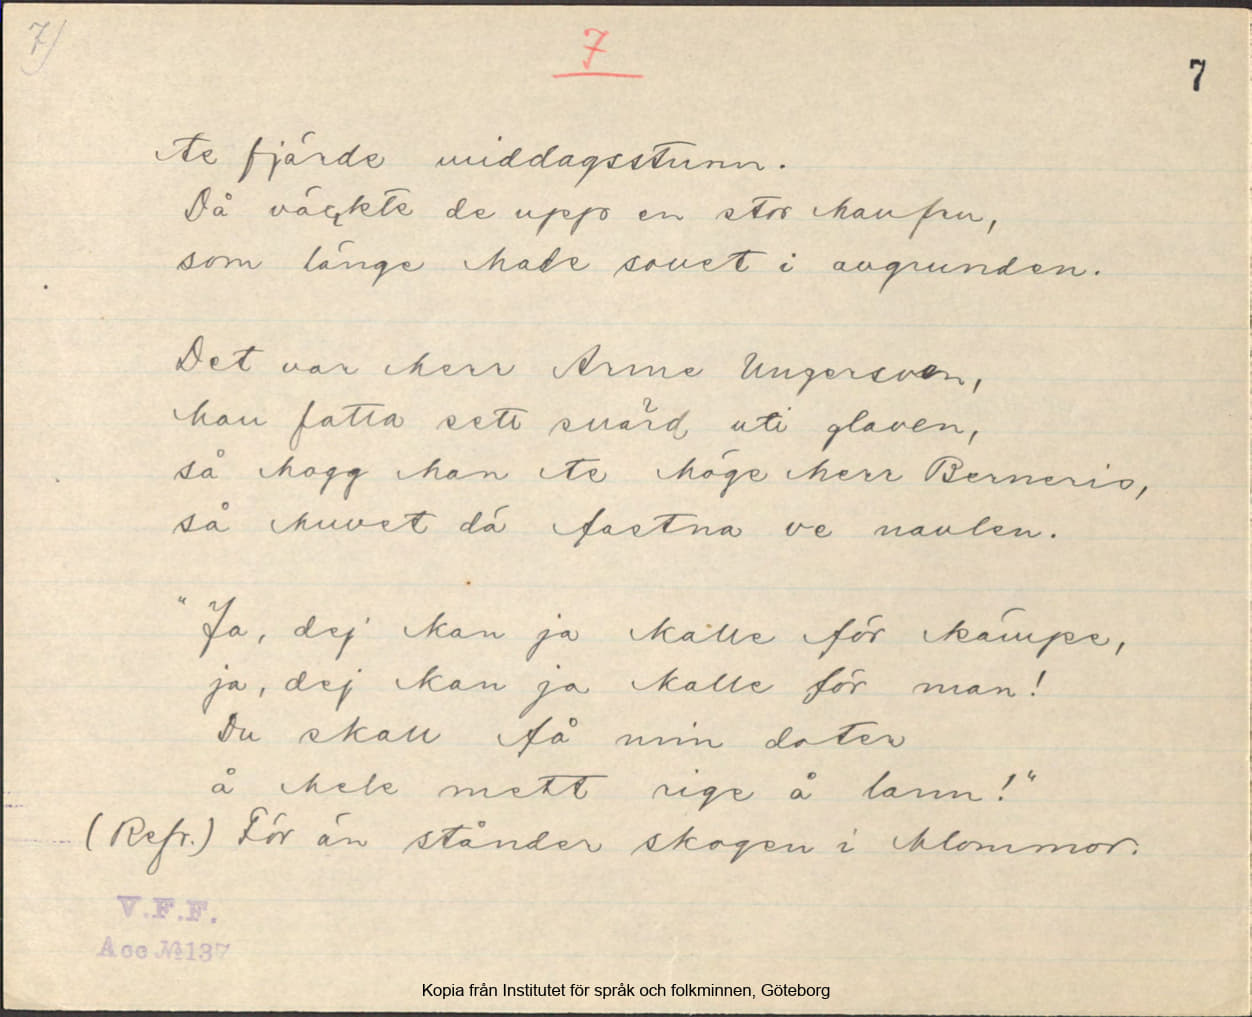 7)
7
7
te fjärde middagsstunn.
Då väckte de upp en stor haufru,
som länge hade sovet i avgrunden.
Det var herr Arme Ungersven,
hau fatta sett svärd uti glaven,
så hogg han te höge herr Berneris,
så huvet dä fastna ve navlen.
"Ja, dej kan ja kalle för kämpe,
ja, dej kan ja kalle för man!
Du skall få min doter
å hele mett rige å lann!"
(Refr.) För än stånder skogen i blommor.
V.F.F.
Acc №137
Kopia från Institutet för språk och folkminnen, Göteborg